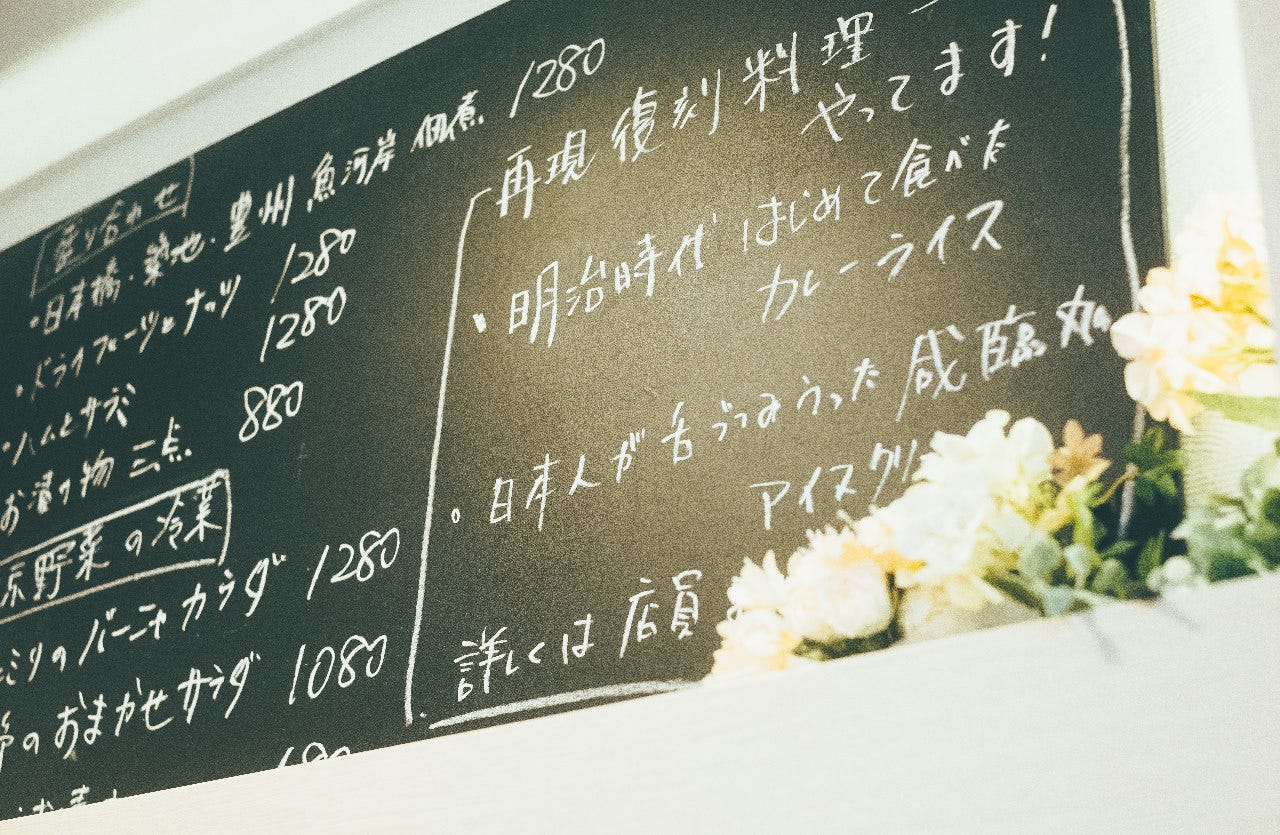 盛り合わせ
・日本橋・築地・豊州 魚河岸 佃煮 1280
・ドライフルーツとナッツ 1280
・ハムとサラダ 1280
お漬け物 三点 880
京野菜の冷菜
のバーニャカウダ 1280
のおまかせサラダ 1080
再現復刻料理
やってます!
・明治時代はじめて食べた
カレーライス
・日本人が舌づつみうった咸臨丸
アイスクリ
詳しくは店員